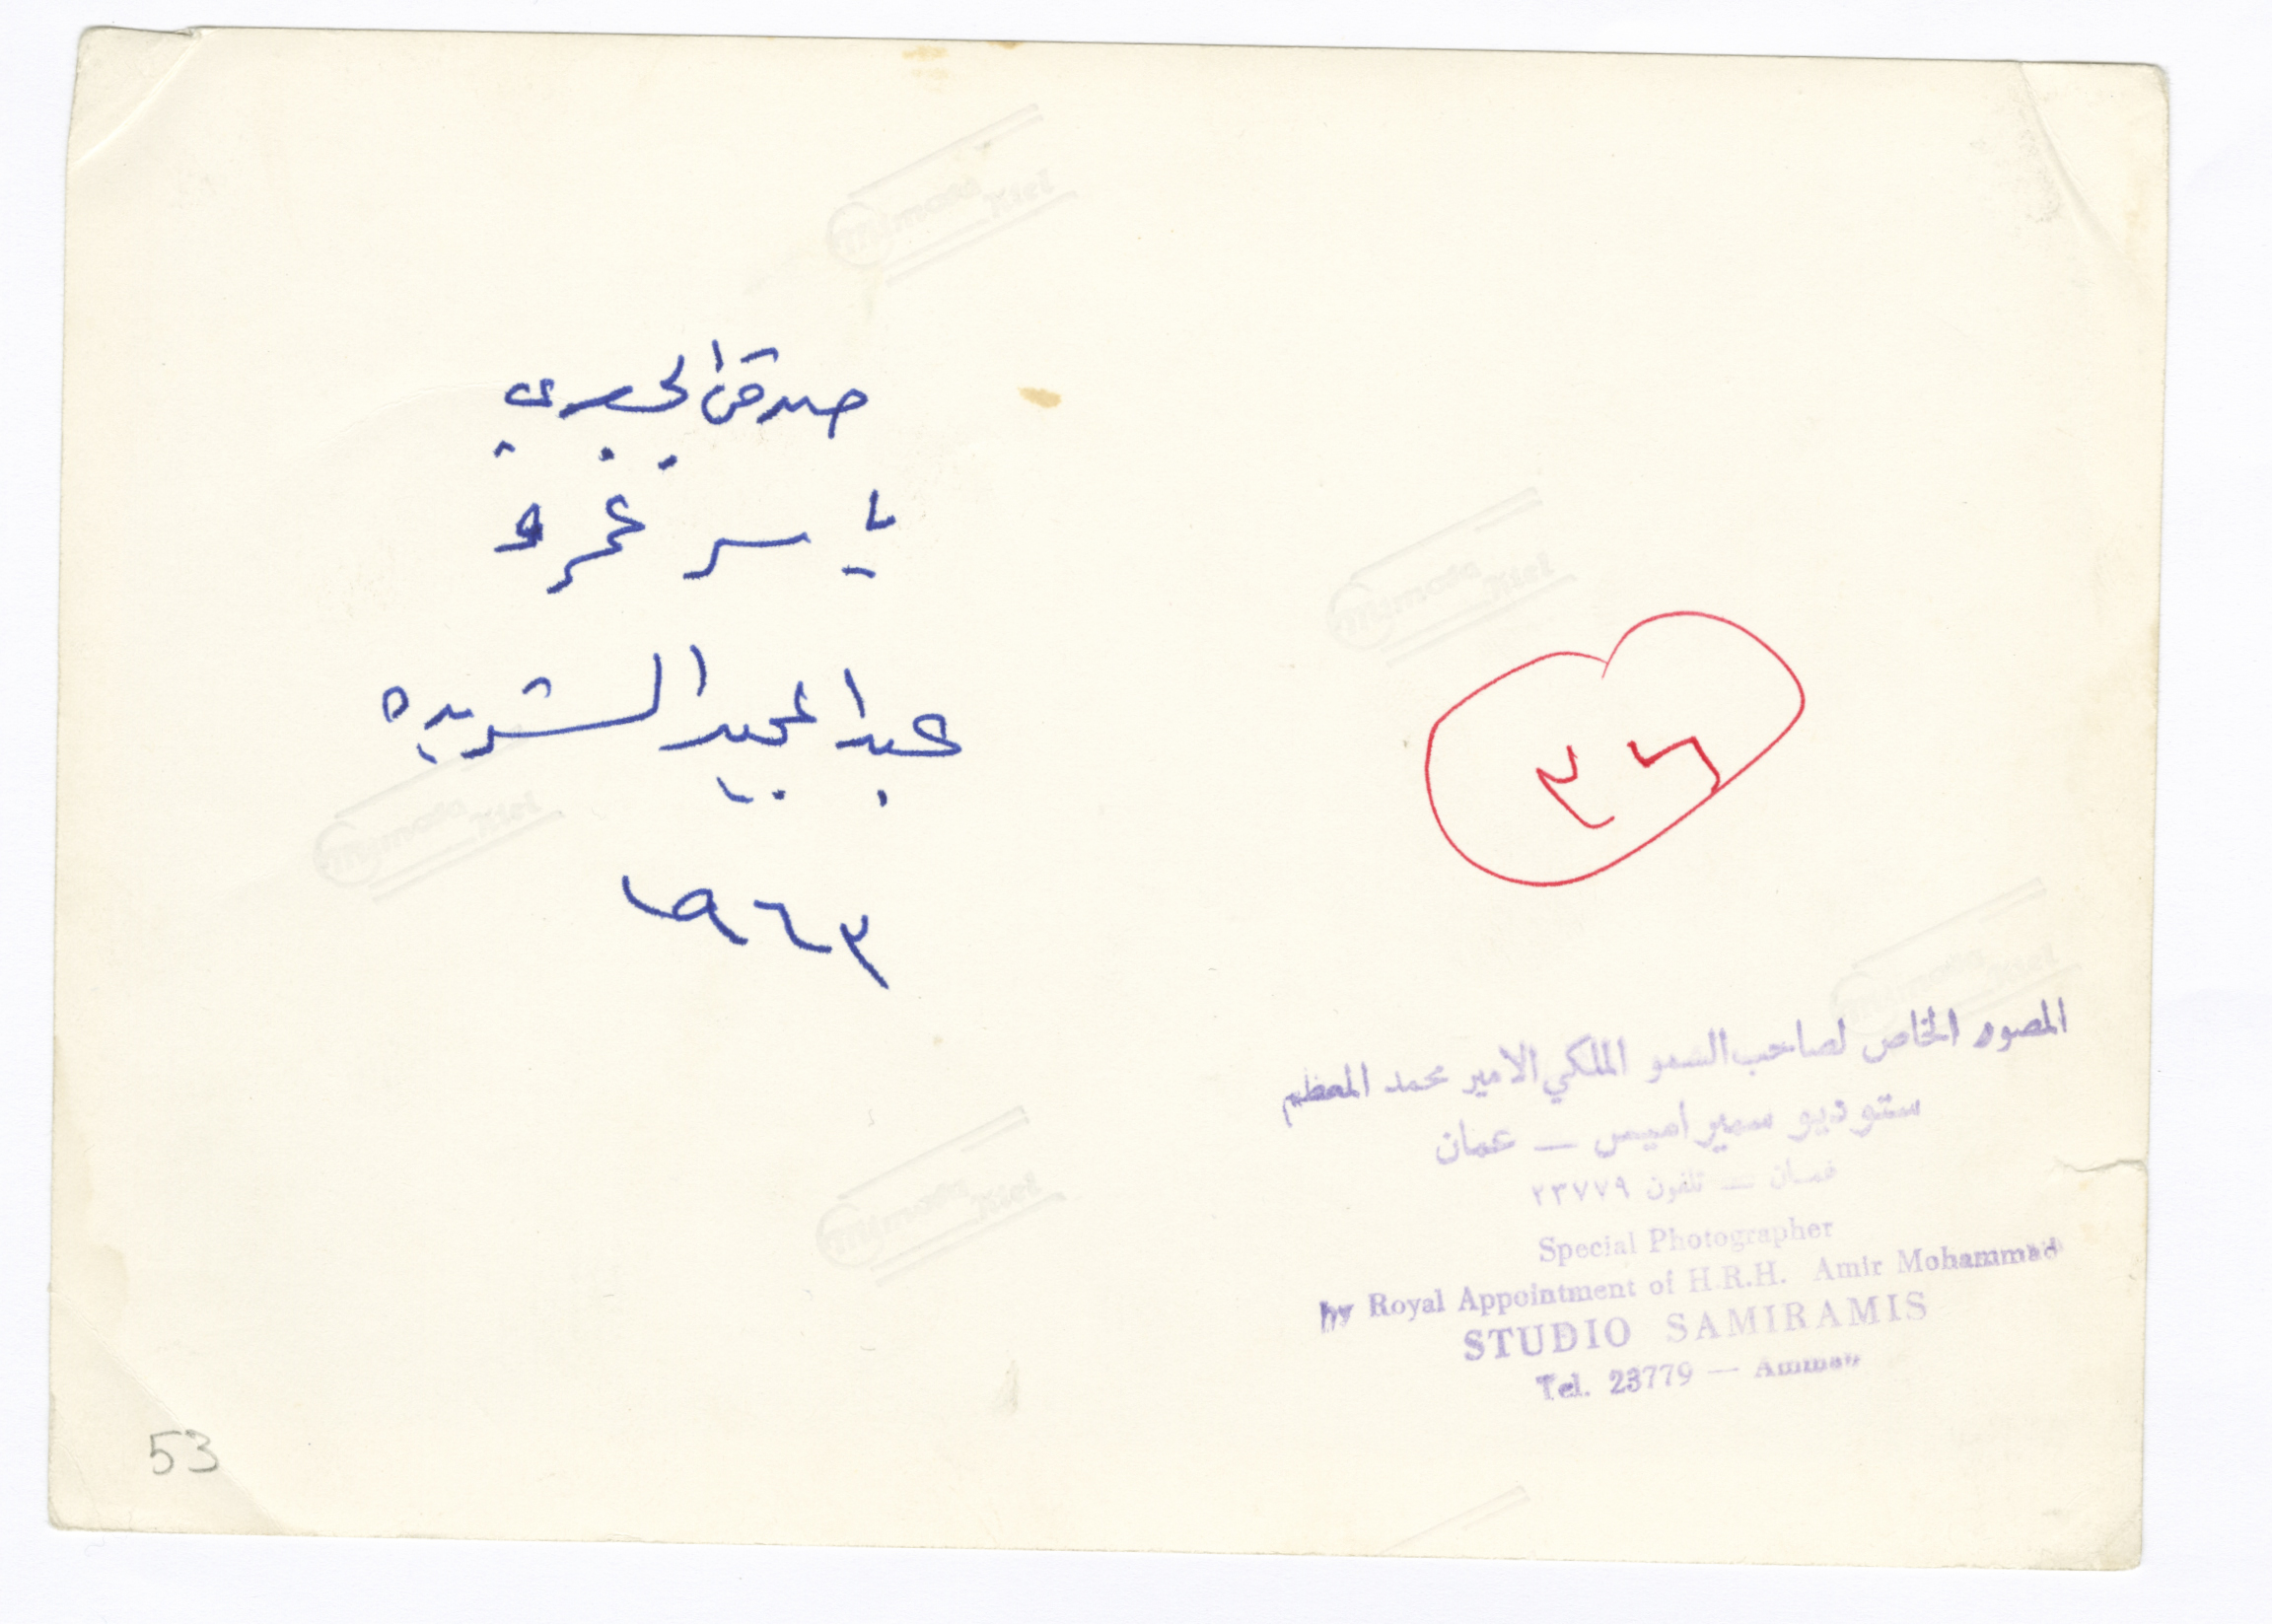 Mimosa Kiel
صدق الجعبري
ياسر عمرو
عبد المجيد الشريده
١٩٦٣
المصور الخاص لصاحب السمو الملكي الامير محمد المعظم
ستوديو سميراميس — عمان
عمان — تلفون ٢٣٧٧٩
Special Photographer
by Royal Appointment of H.R.H. Amir Mohammad
STUDIO SAMIRAMIS
Tel. 23779 — Amman
53